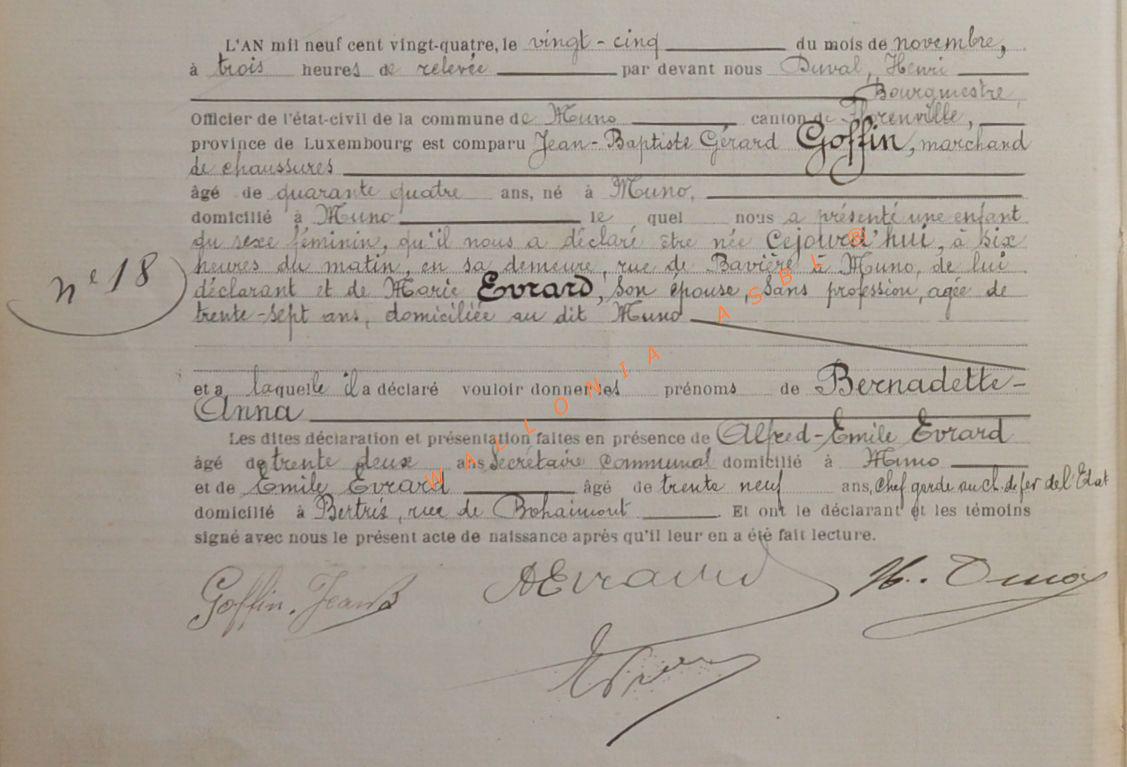 L'AN mil neuf cent vingt-quatre, le vingt-cinq du mois de novembre,
à trois heures de relevée par devant nous Duval, Henri
Bourgmestre,
Officier de l'état-civil de la commune de Muno canton de Florenville,
province de Luxembourg est comparu Jean-Baptiste Gérard Goffin, marchand
de chaussures
âgé de quarante quatre ans, né à Muno,
domicilié à Muno le quel nous a présenté une enfant
du sexe féminin, qu'il nous a déclaré être née cejourd'hui, à six
n° 18
heures du matin, en sa demeure, rue de Bavière à Muno, de lui
déclarant et de Marie Evrard, son épouse, sans profession, agée de
trente-sept ans, domiciliée au dit Muno
et a laquelle il a déclaré vouloir donner les prénoms de Bernadette-
Anna
Les dites déclaration et présentation faites en présence de Alfred-Emile Evrard
âgé de trente deux ans secrétaire communal domicilié à Muno
et de Emile Evrard âgé de trente neuf ans, chef garde au ch. de fer de l'Etat
domicilié à Bertrix, rue de Bohaimont. Et ont le déclarant et les témoins
signé avec nous le présent acte de naissance après qu'il leur en a été fait lecture.
Goffin. Jean B
AEvrard
H. Duval
WALLONIA ASBL @